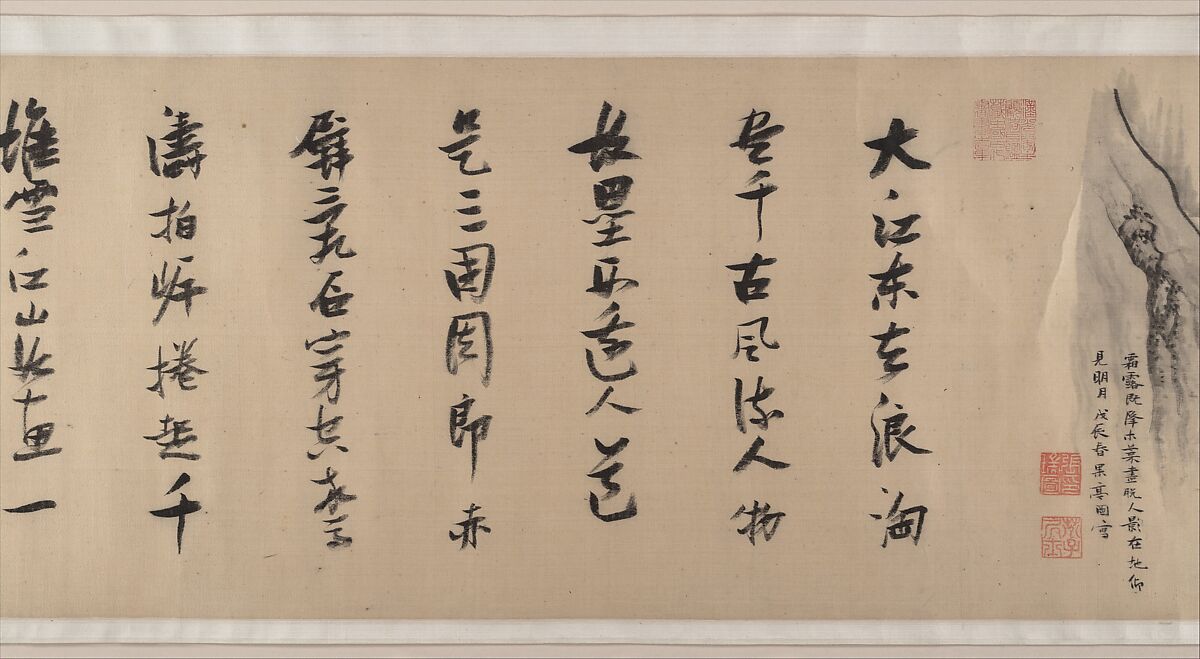 霜露既降木葉盡脫人影在地仰
見明月 戊辰春果亭圖寫
大江東去浪淘
盡千古風流人物
故壘西邊人道
是三國周郎赤
壁亂石穿空驚
濤拍岸捲起千
堆雪江山如畫一